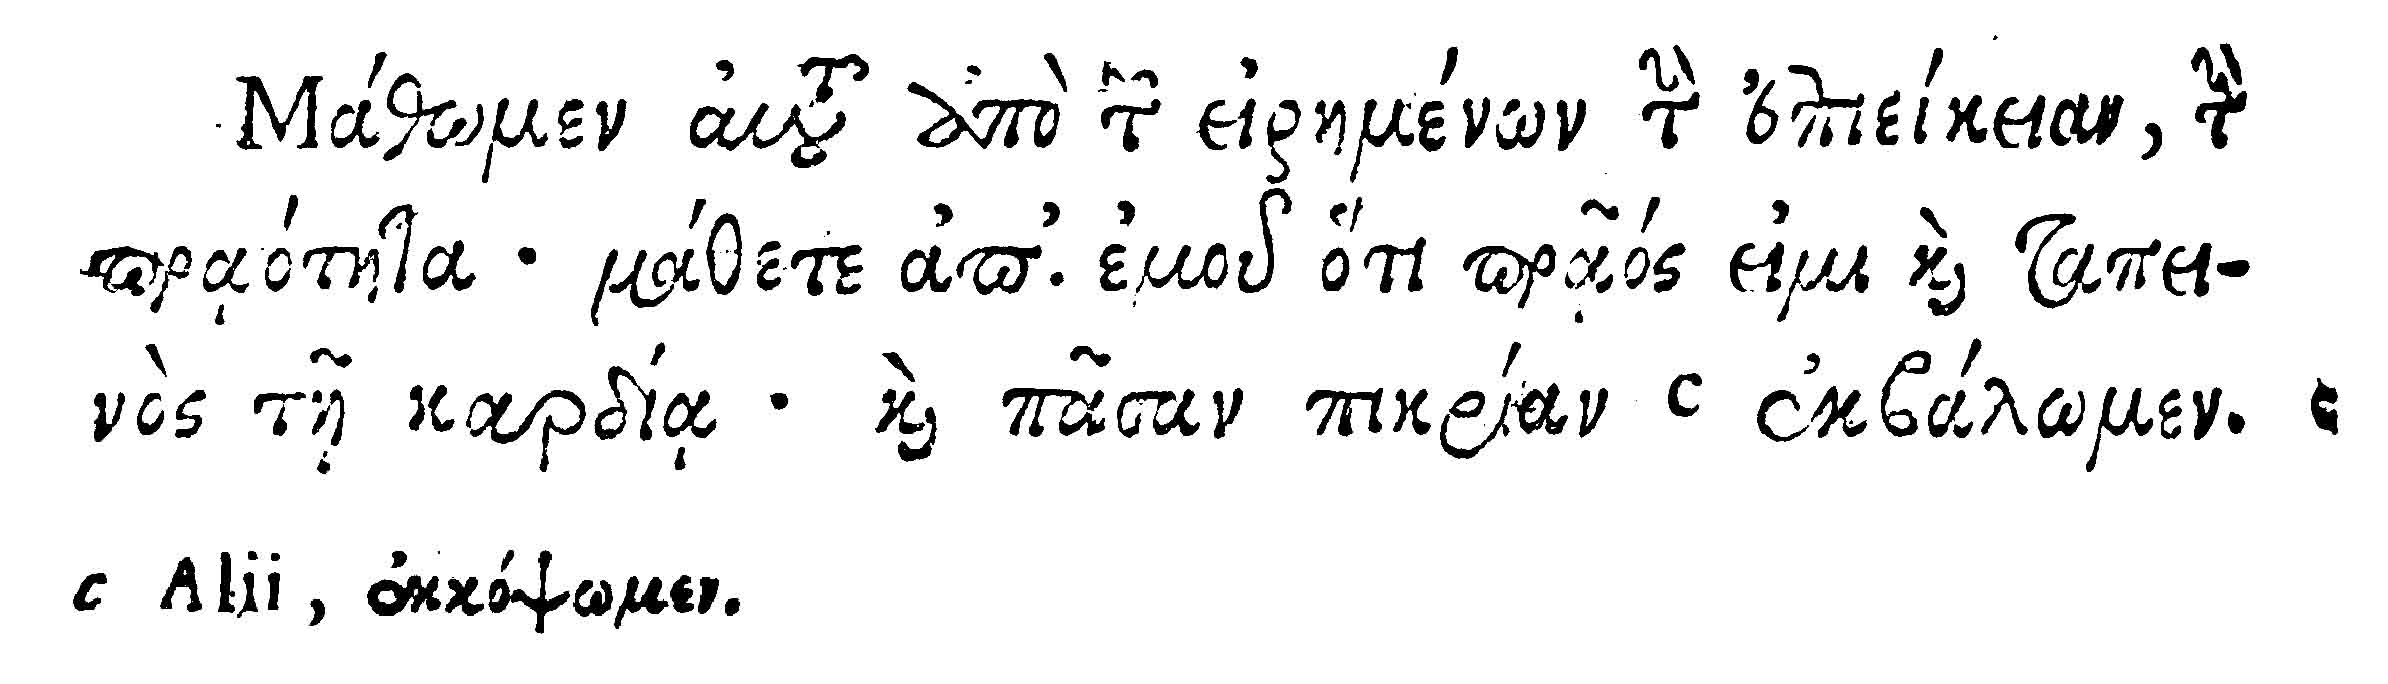 Μάθωμεν ἀυτοῦ ἀπὸ τῶν εἰρημένων τὴν ἐπιείκειαν, τὴν
πρᾳότητα · μάθετε ἀπ᾽. ἐμοῦ ὅτι πρᾷός εἰμι καὶ ταπει-
νὸς τῇ καρδίᾳ · καὶ πᾶσαν πικρίαν c ἐκβάλωμεν. c
c Alii, ἐκκόψωμεν.